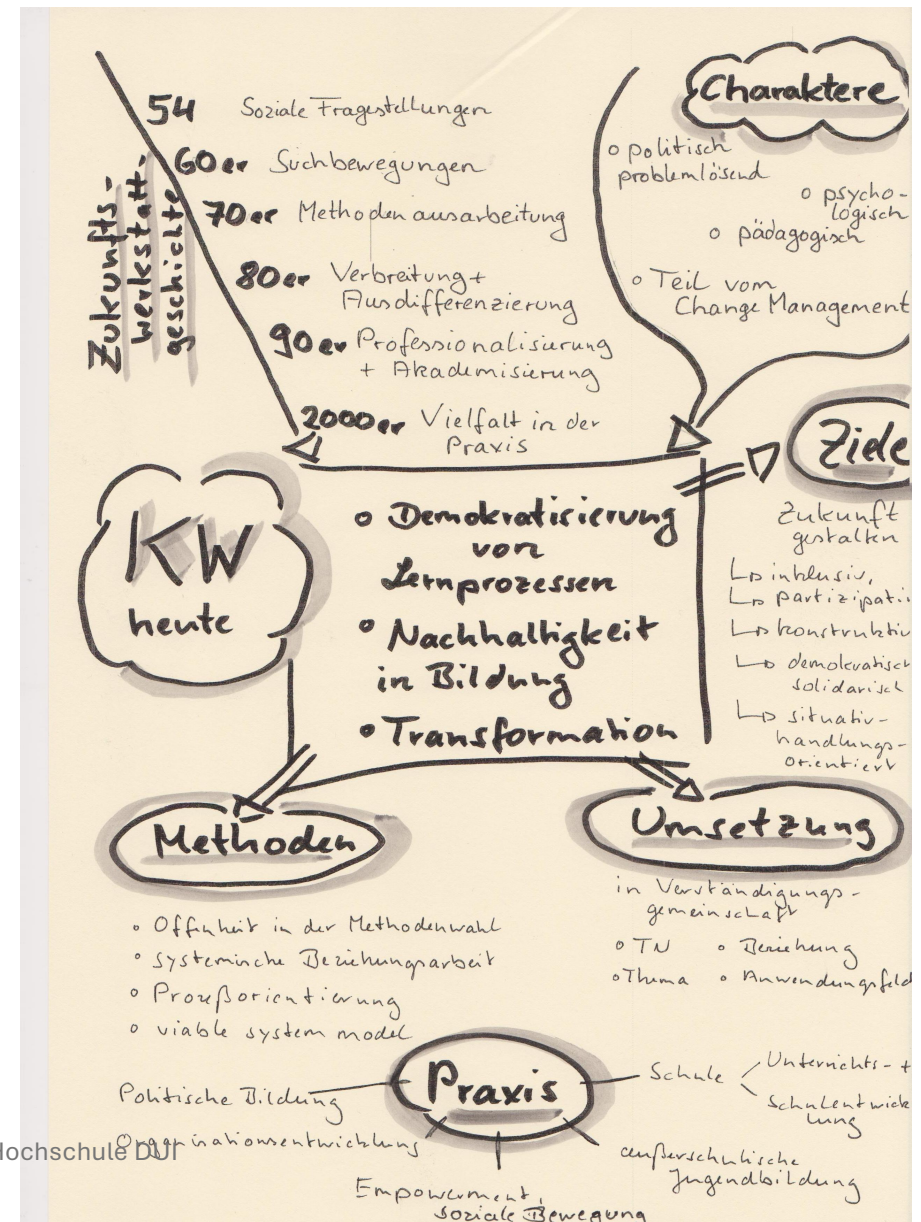 54 Soziale Fragestellungen
60er Suchbewegungen
70er Methodenausarbeitung
80er Verbreitung +
Ausdifferenzierung
90er Professionalisierung
+ Akademisierung
2000er Vielfalt in der
Praxis
Zukunfts-
werkstatt-
geschichte
Charaktere
o politisch
problemlösend
o psycho-
logisch
o pädagogisch
o Teil vom
Change Management
Ziele
Zukunft
gestalten
inklusiv,
partizipati
konstruktiv
demokratisch
solidarisch
situativ-
handlungs-
orientiert
KW
heute
o Demokratisierung
von
Lernprozessen
o Nachhaltigkeit
in Bildung
o Transformation
Methoden
o Offenheit in der Methodenwahl
o systemische Beziehungsarbeit
o Prozeßorientierung
o viable system model
Umsetzung
in Verständigungs-
gemeinschaft
o TN o Beziehung
o Thema o Anwendungsfeld
Praxis
Politische Bildung
Organisationsentwicklung
Empowerment,
soziale Bewegung
außerschulische
Jugendbildung
Schule
Unterrichts- +
Schulentwick
lung
Hochschule DUI